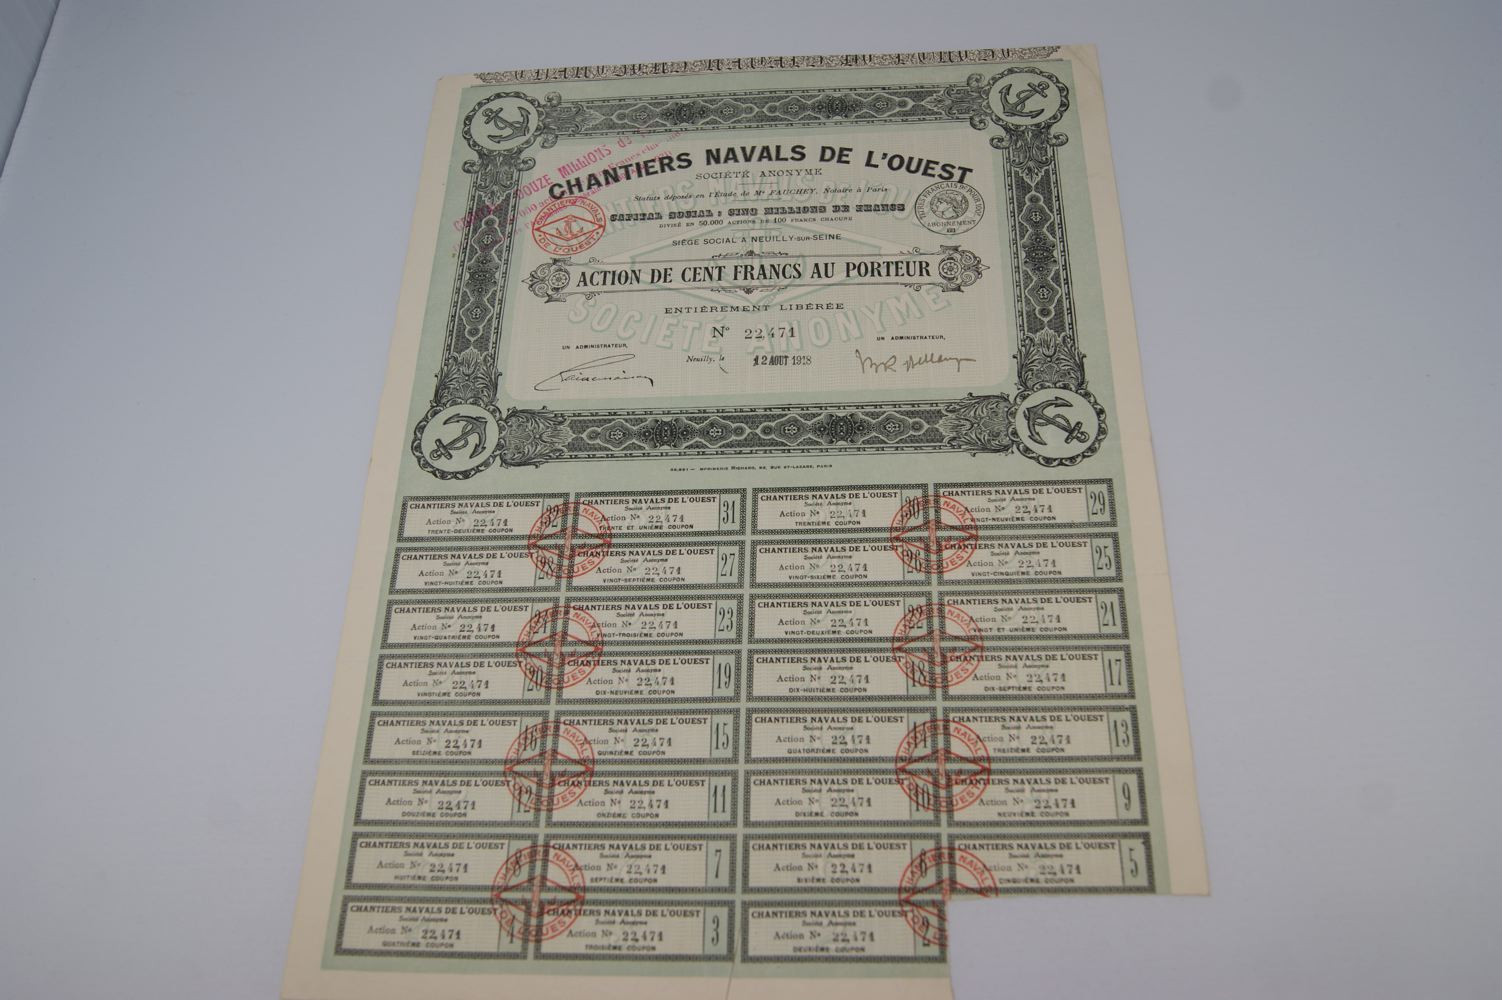 CHANTIERS NAVALS DE L'OUEST
SOCIÉTÉ ANONYME
Statuts déposés en l'Étude de Me FAUCHEY, Notaire à Paris
CAPITAL SOCIAL : CINQ MILLIONS DE FRANCS
DIVISÉ EN 50.000 ACTIONS DE 100 FRANCS CHACUNE
SIÈGE SOCIAL A NEUILLY-SUR-SEINE
DOUZE MILLIONS
CHANTIERS NAVALS
DE L'OUEST
ABONNEMENT
ACTION DE CENT FRANCS AU PORTEUR
ENTIÈREMENT LIBÉRÉE
SOCIÉTÉ ANONYME
N° 22,471
UN ADMINISTRATEUR,
UN ADMINISTRATEUR,
Neuilly, le 12 AOUT 1918
IMPRIMERIE RICHARD, RUE ST-LAZARE, PARIS
CHANTIERS NAVALS DE L'OUEST
Société Anonyme
Action N° 22,471
TRENTE-DEUXIÈME COUPON
32
CHANTIERS NAVALS DE L'OUEST
Société Anonyme
Action N° 22,471
TRENTE ET UNIÈME COUPON
31
CHANTIERS NAVALS DE L'OUEST
Société Anonyme
Action N° 22,471
TRENTIÈME COUPON
30
CHANTIERS NAVALS DE L'OUEST
Société Anonyme
Action N° 22,471
VINGT-NEUVIÈME COUPON
29
CHANTIERS NAVALS DE L'OUEST
Société Anonyme
Action N° 22,471
VINGT-HUITIÈME COUPON
28
CHANTIERS NAVALS DE L'OUEST
Société Anonyme
Action N° 22,471
VINGT-SEPTIÈME COUPON
27
CHANTIERS NAVALS DE L'OUEST
Société Anonyme
Action N° 22,471
VINGT-SIXIÈME COUPON
26
CHANTIERS NAVALS DE L'OUEST
Société Anonyme
Action N° 22,471
VINGT-CINQUIÈME COUPON
25
CHANTIERS NAVALS DE L'OUEST
Société Anonyme
Action N° 22,471
VINGT-QUATRIÈME COUPON
24
CHANTIERS NAVALS DE L'OUEST
Société Anonyme
Action N° 22,471
VINGT-TROISIÈME COUPON
23
CHANTIERS NAVALS DE L'OUEST
Société Anonyme
Action N° 22,471
VINGT-DEUXIÈME COUPON
22
CHANTIERS NAVALS DE L'OUEST
Société Anonyme
Action N° 22,471
VINGT ET UNIÈME COUPON
21
CHANTIERS NAVALS DE L'OUEST
Société Anonyme
Action N° 22,471
VINGTIÈME COUPON
20
CHANTIERS NAVALS DE L'OUEST
Société Anonyme
Action N° 22,471
DIX-NEUVIÈME COUPON
19
CHANTIERS NAVALS DE L'OUEST
Société Anonyme
Action N° 22,471
DIX-HUITIÈME COUPON
18
CHANTIERS NAVALS DE L'OUEST
Société Anonyme
Action N° 22,471
DIX-SEPTIÈME COUPON
17
CHANTIERS NAVALS DE L'OUEST
Société Anonyme
Action N° 22,471
SEIZIÈME COUPON
16
CHANTIERS NAVALS DE L'OUEST
Société Anonyme
Action N° 22,471
QUINZIÈME COUPON
15
CHANTIERS NAVALS DE L'OUEST
Société Anonyme
Action N° 22,471
QUATORZIÈME COUPON
14
CHANTIERS NAVALS DE L'OUEST
Société Anonyme
Action N° 22,471
TREIZIÈME COUPON
13
CHANTIERS NAVALS DE L'OUEST
Société Anonyme
Action N° 22,471
DOUZIÈME COUPON
12
CHANTIERS NAVALS DE L'OUEST
Société Anonyme
Action N° 22,471
ONZIÈME COUPON
11
CHANTIERS NAVALS DE L'OUEST
Société Anonyme
Action N° 22,471
DIXIÈME COUPON
10
CHANTIERS NAVALS DE L'OUEST
Société Anonyme
Action N° 22,471
NEUVIÈME COUPON
9
CHANTIERS NAVALS DE L'OUEST
Société Anonyme
Action N° 22,471
HUITIÈME COUPON
8
CHANTIERS NAVALS DE L'OUEST
Société Anonyme
Action N° 22,471
SEPTIÈME COUPON
7
CHANTIERS NAVALS DE L'OUEST
Société Anonyme
Action N° 22,471
SIXIÈME COUPON
6
CHANTIERS NAVALS DE L'OUEST
Société Anonyme
Action N° 22,471
CINQUIÈME COUPON
5
CHANTIERS NAVALS DE L'OUEST
Société Anonyme
Action N° 22,471
QUATRIÈME COUPON
4
CHANTIERS NAVALS DE L'OUEST
Société Anonyme
Action N° 22,471
TROISIÈME COUPON
3
CHANTIERS NAVALS DE L'OUEST
Société Anonyme
Action N° 22,471
DEUXIÈME COUPON
2